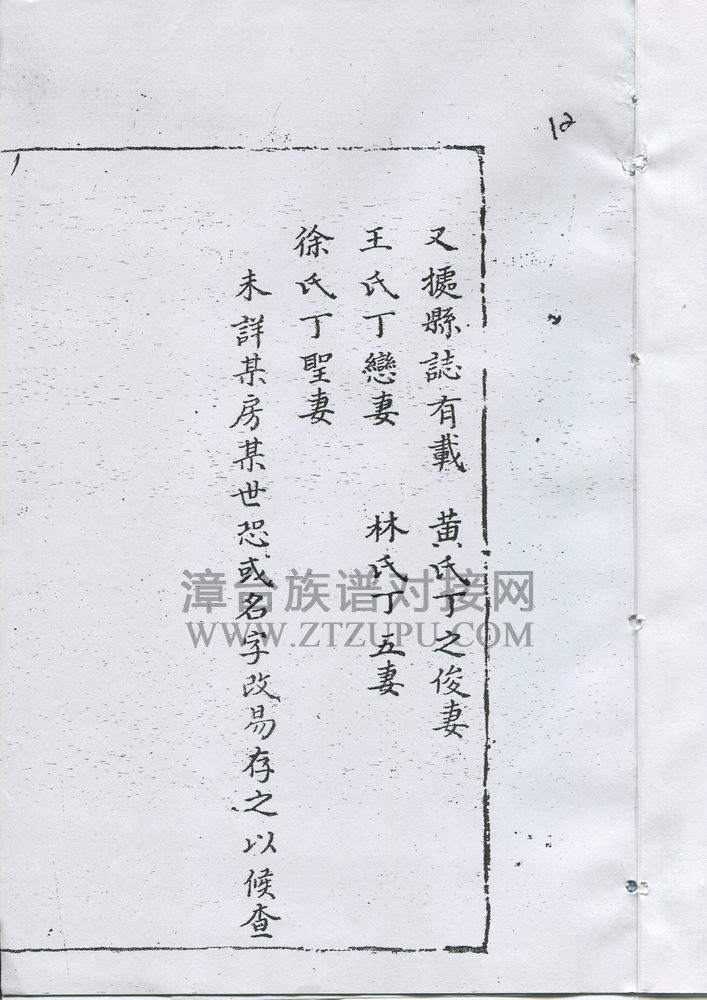 12
又據縣誌有載 黃氏丁之俊妻
王氏丁戀妻 林氏丁五妻
徐氏丁聖妻
未詳某房某世恐或名字改易存之以候查
漳台族谱对接网
WWW.ZTZUPU.COM